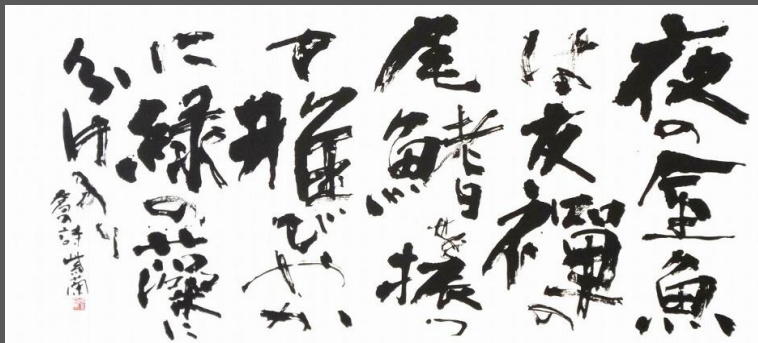 夜の金魚
は友禪の
尾鰭を振つ
て雅びやか
に緑の藻に
分け入り
の詩 紫蘭